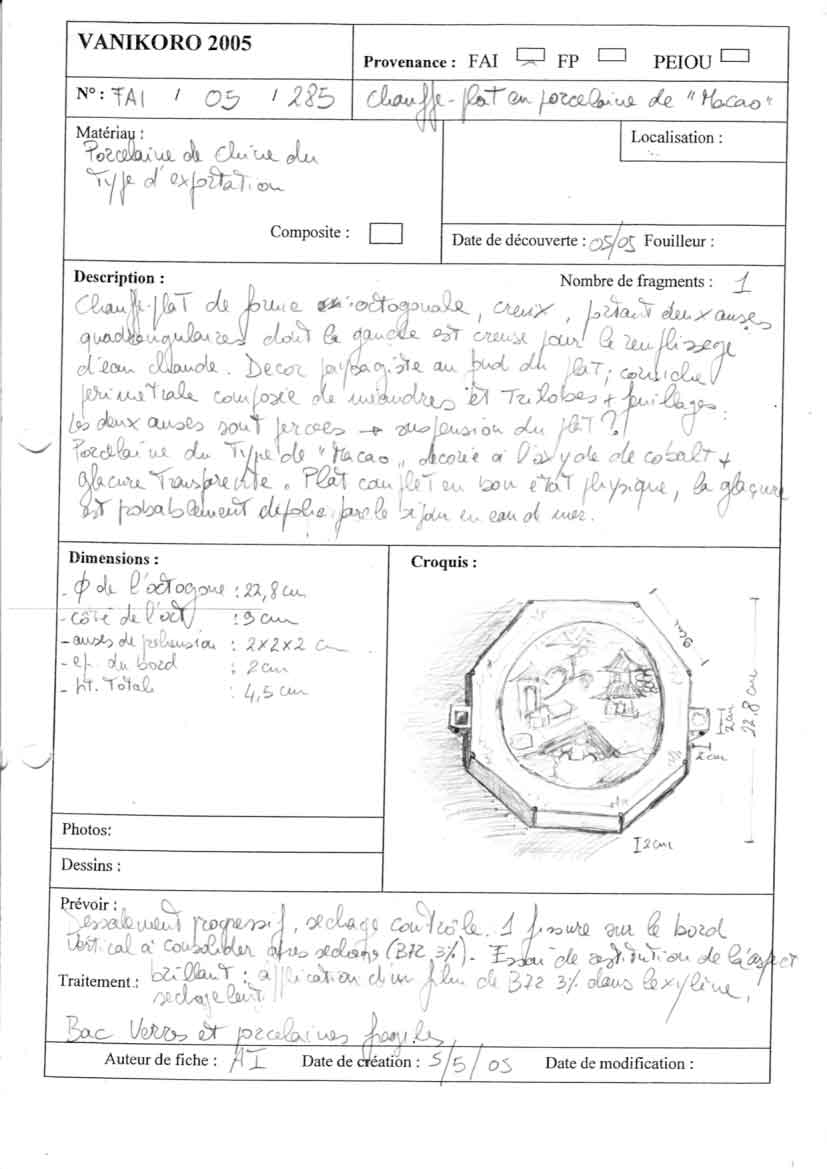 VANIKORO 2005
Provenance : FAI FP PEIOU
N° : FAI / 05 / 285
Chauffe-plat en porcelaine de "Macao"
Matériau :
Porcelaine de Chine du
Type d'exportation
Composite :
Localisation :
Date de découverte : 05/05 Fouilleur :
Description :
Nombre de fragments : 1
Chauffe-plat de forme octogonale, creux, portant deux anses
quadrangulaires dont la gauche est creuse pour le remplissage
d'eau chaude. Decor paysagiste au fond du plat; corniche
perimetrale composée de méandres et Trilobes + feuillages.
Les deux anses sont percées → suspension du plat ?
Porcelaine du Type de "Macao" decorée à l'oxyde de cobalt +
glaçure Transparente. Plat complet en bon état physique, la glaçure
est probablement dépolie par le séjour en eau de mer.
Dimensions :
- ϕ de l'octogone : 22,8 cm
- côté de l'oct : 9 cm
- anses de préhension : 2x2x2 cm
- ep. du bord : 2 cm
- ht. Totale : 4,5 cm
Croquis :
9cm
22,8 cm
2cm
2cm
2cm
Photos:
Dessins :
Prévoir :
Dessalement progressif, séchage contrôlé. 1 fissure sur le bord
vertical à consolider après séchage (B72 3%). Essai de restitution de l'aspect
Traitement : brillant : application d'un film de B72 3% dans le xylène,
séchage lent
Bac Verres et porcelaines fragiles
Auteur de fiche : AI Date de création : 5/5/05 Date de modification :